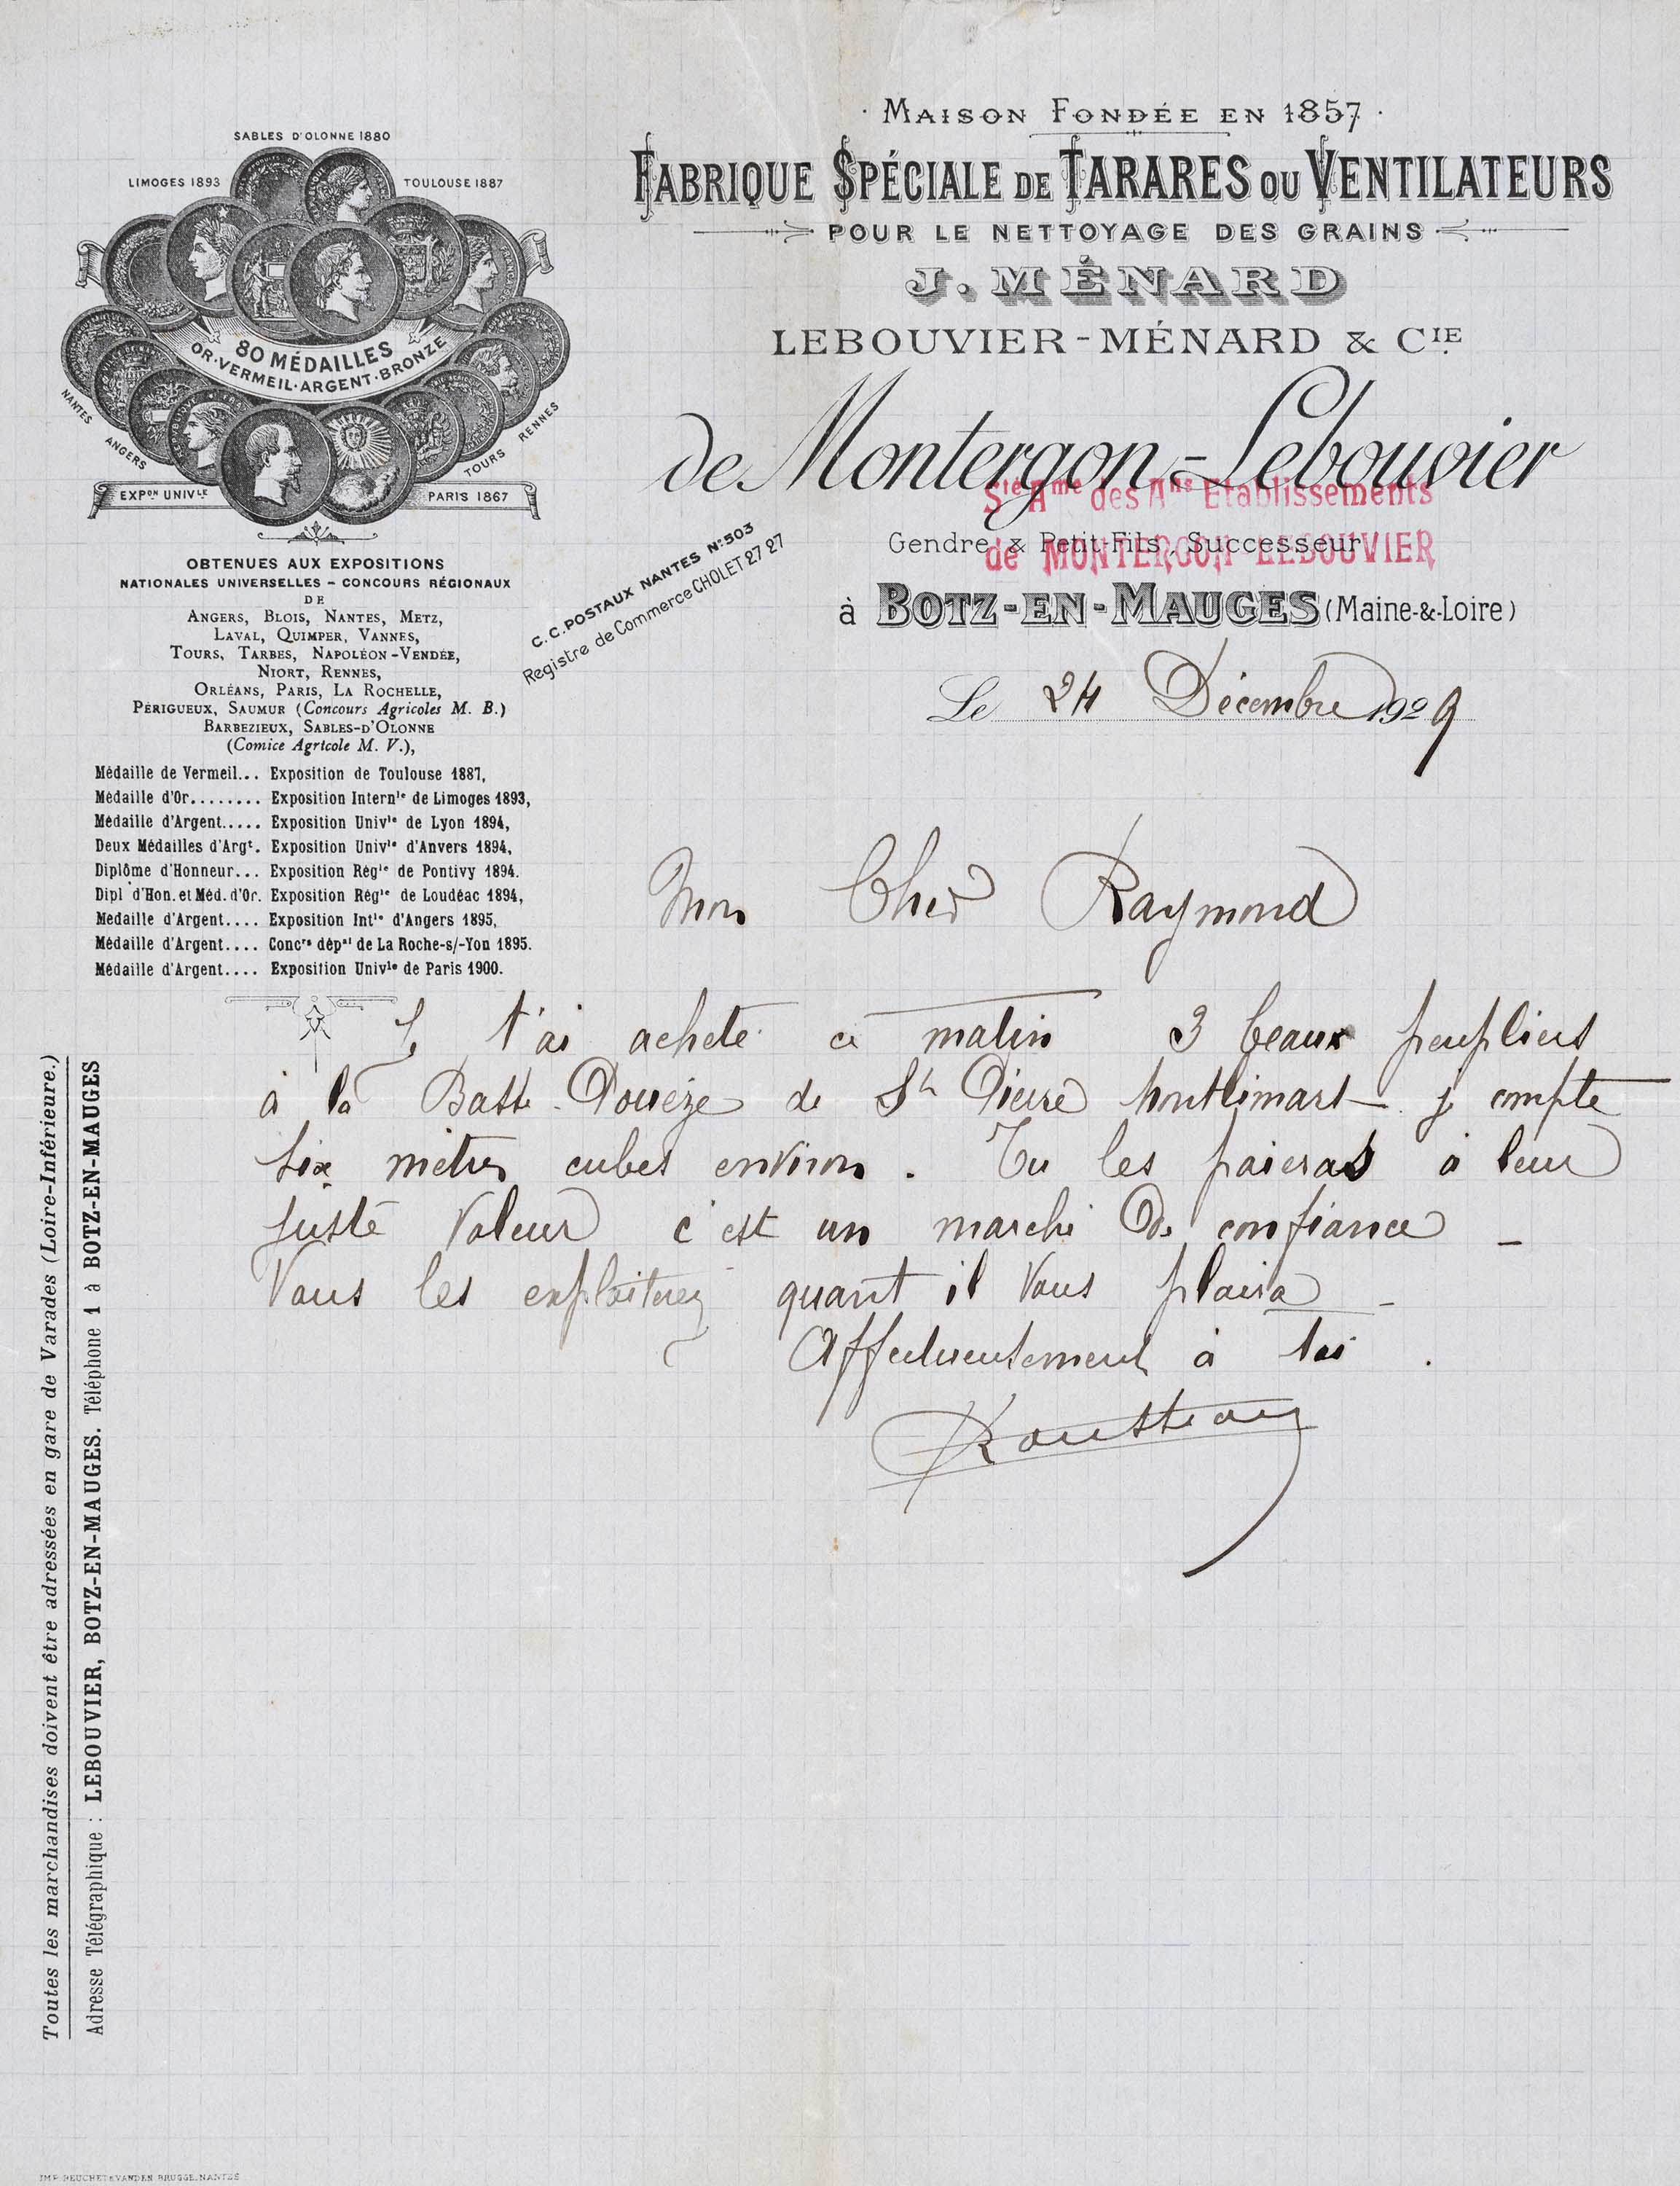 SABLES D'OLONNE 1880
LIMOGES 1893
TOULOUSE 1887
80 MÉDAILLES
OR·VERMEIL·ARGENT·BRONZE
NANTES
ANGERS
TOURS
RENNES
EXPᵒⁿ UNIVᴸᴱ
PARIS 1867
OBTENUES AUX EXPOSITIONS
NATIONALES UNIVERSELLES – CONCOURS RÉGIONAUX
DE
ANGERS, BLOIS, NANTES, METZ,
LAVAL, QUIMPER, VANNES,
TOURS, TARBES, NAPOLÉON-VENDÉE,
NIORT, RENNES,
ORLÉANS, PARIS, LA ROCHELLE,
PÉRIGUEUX, SAUMUR (Concours Agricoles M. B.)
BARBEZIEUX, SABLES-D'OLONNE
(Comice Agricole M. V.),
Médaille de Vermeil... Exposition de Toulouse 1887,
Médaille d'Or........ Exposition Internˡᵉ de Limoges 1893,
Médaille d'Argent..... Exposition Univˡᵉ de Lyon 1894,
Deux Médailles d'Argᵗ. Exposition Univˡᵉ d'Anvers 1894,
Diplôme d'Honneur... Exposition Régˡᵉ de Pontivy 1894.
Dipl d'Hon. et Méd. d'Or. Exposition Régˡᵉ de Loudéac 1894,
Médaille d'Argent.... Exposition Intˡᵉ d'Angers 1895,
Médaille d'Argent.... Concʳˢ dépᵃˡ de La Roche-s/-Yon 1895.
Médaille d'Argent.... Exposition Univˡᵉ de Paris 1900.
· MAISON FONDÉE EN 1857 ·
FABRIQUE SPÉCIALE DE TARARES OU VENTILATEURS
POUR LE NETTOYAGE DES GRAINS
J. MÉNARD
LEBOUVIER-MÉNARD & Cᴵᴱ
de Montergon-Lebouvier
Sᵗᵉ Aᵐᵉ des Aⁿˢ Etablissements
Gendre & Petit-Fils, Successeur
de MONTERGON-LEBOUVIER
à BOTZ-EN-MAUGES (Maine-&-Loire)
C. C. POSTAUX NANTES N° 503
Registre de Commerce CHOLET 27 27
Le 24 Décembre 1929
Mon Cher Raymond
Je t'ai acheté ce matin 3 beaux peupliers
à la Basse de Sᵗ Pierre Montlimart j compte
six mètres cubes environ. Tu les paieras à leur
juste valeur c'est un marché de confiance –
Vous les exploiterez quant il vous plaira –
Affectueusement à toi.
Toutes les marchandises doivent être adressées en gare de Varades (Loire-Inférieure.)
Adresse Télégraphique : LEBOUVIER, BOTZ-EN-MAUGES. Téléphone 1 à BOTZ-EN-MAUGES
IMP. REUCHET & VANDEN BRUGGE. NANTES